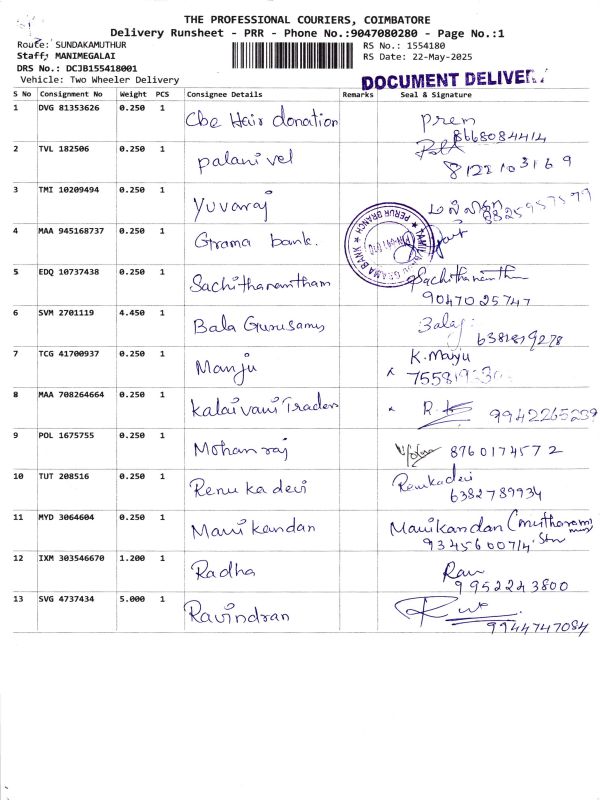 THE PROFESSIONAL COURIERS, COIMBATORE
Delivery Runsheet - PRR - Phone No.:9047080280 - Page No.:1
Route: SUNDAKAMUTHUR
RS No.: 1554180
Staff: MANIMEGALAI
RS Date: 22-May-2025
DRS No.: DCJB155418001
Vehicle: Two Wheeler Delivery
DOCUMENT DELIVER
S No Consignment No Weight PCS Consignee Details Remarks Seal & Signature
1 DVG 81353626 0.250 1 Cbe Hair donation Prem
8668084414
2 TVL 182506 0.250 1 Palanivel
8122103169
3 TMI 10209494 0.250 1 Yuvaraj
4 MAA 945168737 0.250 1 Grama bank.
TAMILNADU GRAMA BANK
PERUR BRANCH
5 EDQ 10737438 0.250 1 Sachithanantham Sachithanantham
9047025747
6 SVM 2701119 4.450 1 Bala Gurusamy Balaji
6381819278
7 TCG 41700937 0.250 1 Manju K. Manju
8 MAA 708264664 0.250 1 Kalaivani Traders
9942265239
9 POL 1675755 0.250 1 Mohanraj 8760174572
10 TUT 208516 0.250 1 Renuka devi Renukadevi
6382789934
11 MYD 3064604 0.250 1 Manikandan Manikandan
9345600714
12 IXM 303546670 1.200 1 Radha
9952243800
13 SVG 4737434 5.000 1 Ravindran
9944747084